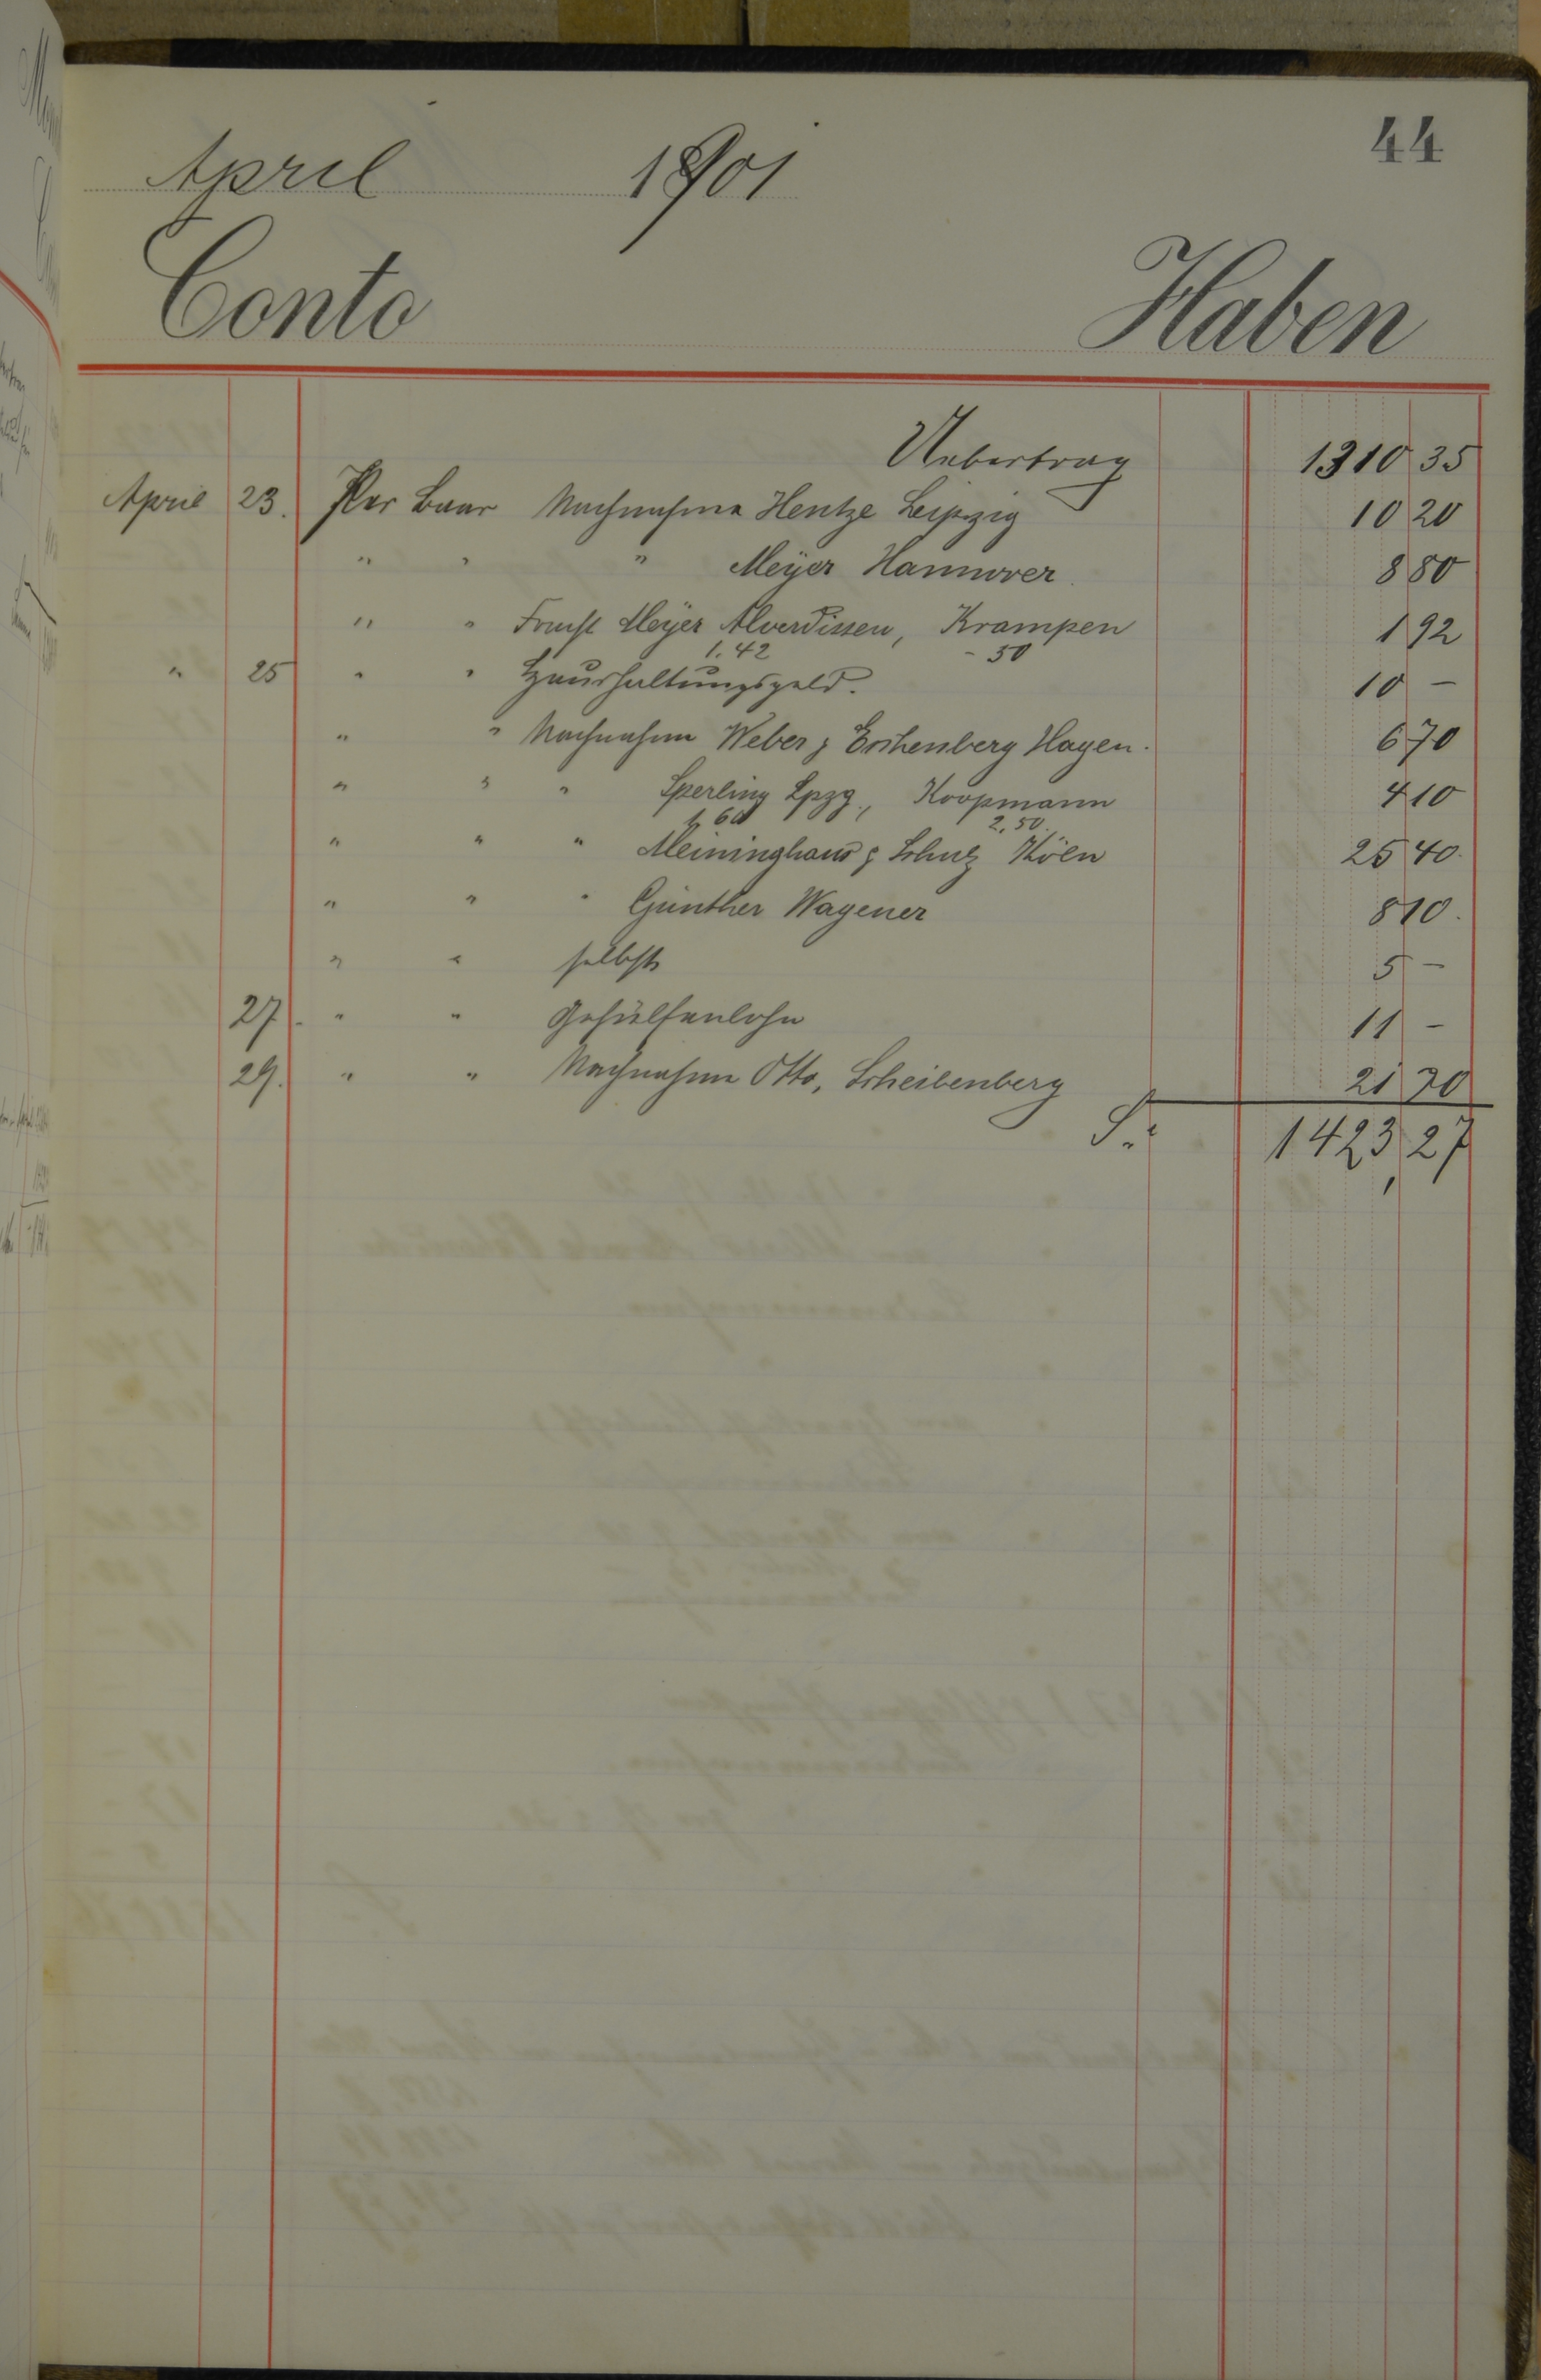 44
April 1901
Conto Haben
Uebertrag 1310 35
April 23. Per Baar Nachnahme Hentze Leipzig 10 20
" " " Meyer Hannover. 8 80
" " Fracht Meyer Alverdissen, Krampen 1 92
1.42 - 50
" 25 " " Haushaltungsgeld. 10 -
" " Nachnahme Weber & Eschenberg Hagen. 6 70
" " " Sperling Lpzg., Koopmann 4 10
1,60 2.50.
" " " Meininghaus & Schulz Köln 25 40.
" " " Günther Wagener 8 10.
" " selbst 5 -
27. " " Gehülfenlohn 11 -
29. " " Nachnahme Otto, Scheibenberg 21 70
S.: 1423,27